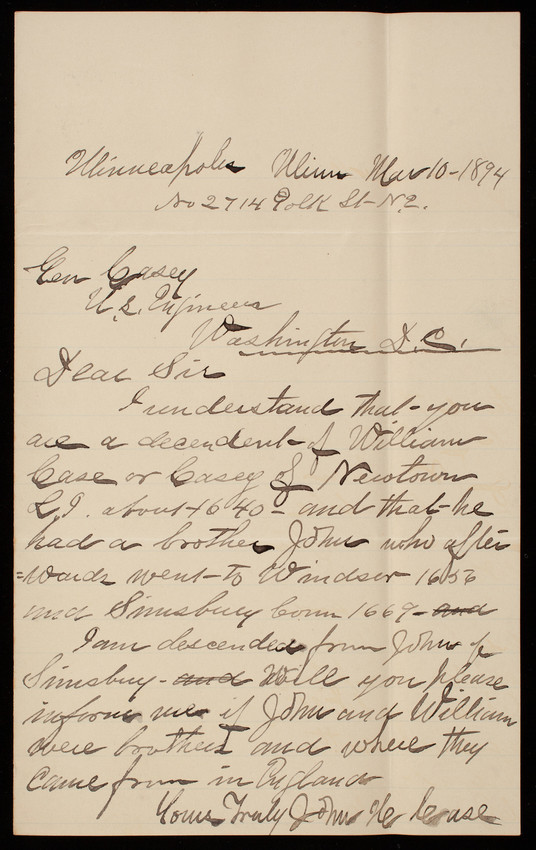 Minneapolis Minn Mar 10-1894
No 2714 Polk St- N.E.
Gen Casey
U.S. Engineers
Washington D.C.
Dear Sir
I understand that- you
are a decendent- of William
Case or Casey of Newtown
L.I. about 1640- and that- he
had a brother John who after
=wards went- to Windsor 1656
and Simsbury Conn 1669- and
I am descended from John of
Simsbury- and Will you please
inform me if John and William
were brothers and where they
came from in England
Yours Truly John H Case